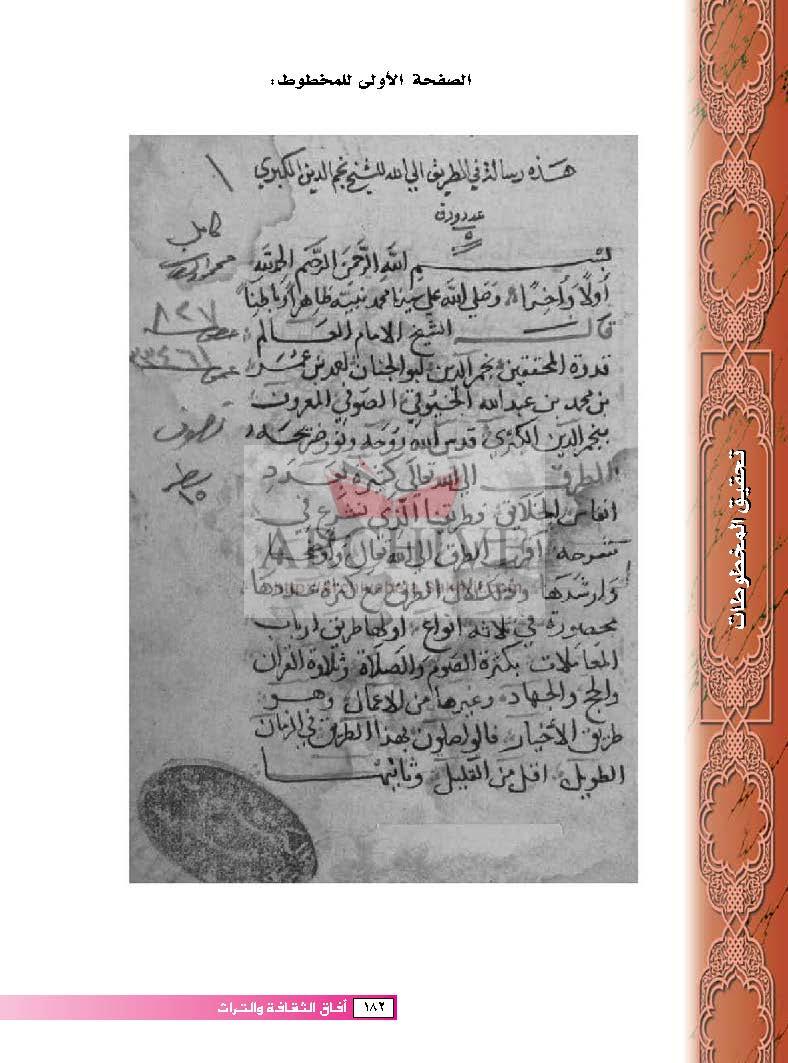 الصفحة الأولى للمخطوط:
هذه رسالة في الطريق الى الله للشيخ نجم الدين الكبري
١
عدد ورق
٥
كامل
بسم الله الرحمن الرحيم الحمد لله
أولا واخرا وصلي الله على سيدنا محمد نبيه ظاهرا وباطنا
٨٢٧
قال الشيخ الامام العالم
قدوة المحققين نجم الدين ابو الجنان احمد بن عمر
بن محمد بن عبد الله الخيوقي الصوفي المعروف
بنجم الدين الكبري قدس الله روحه ونور ضريحه
تصوف
الطرق الى الله تعالى كثيرة بعدد
انفاس الخلائق وطريقنا الذي نشرع في
شرحه اقرب الطرق الى الله تعالى واوضحها
وارشدها وذلك لان الطرق مع كثرة عددها
محصورة في ثلاثة انواع اولها طريق ارباب
المعاملات بكثرة الصوم والصلاة وتلاوة القران
والحج والجهاد وغيرها من الاعمال وهو
طريق الأخيار فالواصلون بهذا الطريق في الزمان
الطويل اقل من القليل وثانيها
ARCHIVE
تحقيق المخطوطات
١٨٢ آفاق الثقافة والتراث